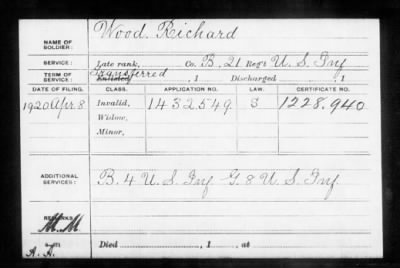 NAME OF SOLDIER: Wood, Richard
SERVICE: Late rank, Co. B, 21 Reg't U. S. Inf
TERM OF SERVICE: Transferred
Enlisted , 1 Discharged , 1
DATE OF FILING. CLASS. APPLICATION NO. LAW. CERTIFICATE NO.
1920 Apr. 8 Invalid, 1432549 S 1228,940
Widow,
Minor,
ADDITIONAL SERVICES: B. 4 U. S. Inf G. 8 U. S. Inf.
REMARKS:
M. M.
Died , 1 , at
A. A.